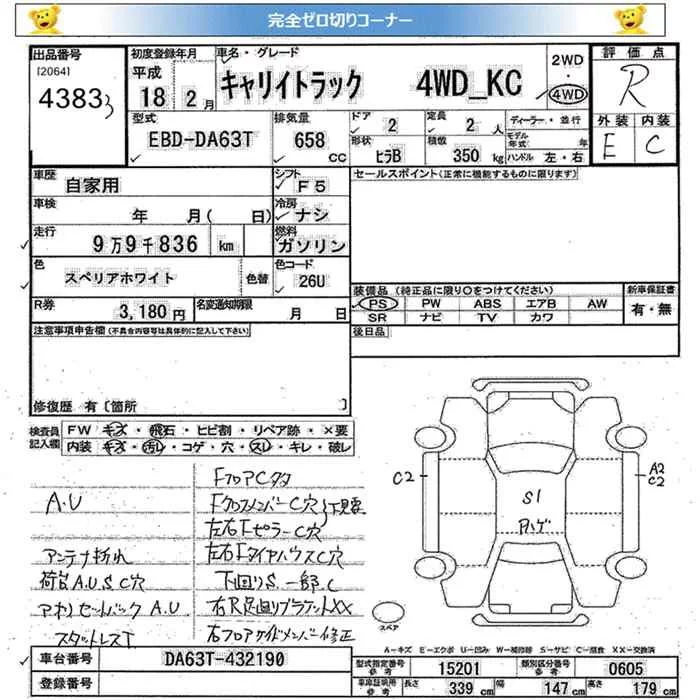 完全ゼロ切りコーナー
出品番号
[2064]
43833
初度登録年月
平成
18 2月
車名・グレード
キャリイトラック 4WD_KC
2WD
・
4WD
評価点
R
外装 内装
E C
型式
EBD-DA63T
排気量
658 CC
ドア
2
定員
2 人
ディーラー・並行
形状
ヒラB
積数
350 kg
モデル年式 年
ハンドル 左・右
車歴
自家用
シフト
F5
車検
年 月( 日)
冷房
ナシ
走行
9万9千836 km
燃料
ガソリン
色
スペリアホワイト
色替
色コード
26U
R券
3,180円
名変通知期限
月 日
セールスポイント(正常に機能するものに限ります)
装備品(純正品に限り○をつけてください)
新車保証書
PS PW ABS エアB AW
有・無
SR ナビ TV カワ
後日品
注意事項申告欄(不具合内容等は具体的に記入して下さい)
修復歴 有〔箇所 〕
検査員記入欄
FW キズ・飛石・ヒビ割・リペア跡・×要
内装 キズ・汚レ・コゲ・穴・スレ・キレ・破レ
A.U
アンテナ折れ
荷台A.U.S.C穴
アオリセットバックA.U
スタットレスT
FフロアCタタ
FクロスメンバーC穴
左右FピラーC穴
下見要
左右FタイヤハウスC穴
下回りS.一部C
右R足回りブラケットXX
右フロアサイドメンバー修正
C2
S1
ハゲ
A2
C2
スペア
A-キズ E-エクボ U-凹み W-補修跡 S-サビ C-腐食 XX-交換済
車台番号
DA63T-432190
登録番号
型式指定番号
参考
15201
類別区分番号
参考
0605
車庫証明用
参考
長さ
339 cm
幅
147 cm
高さ
179 cm